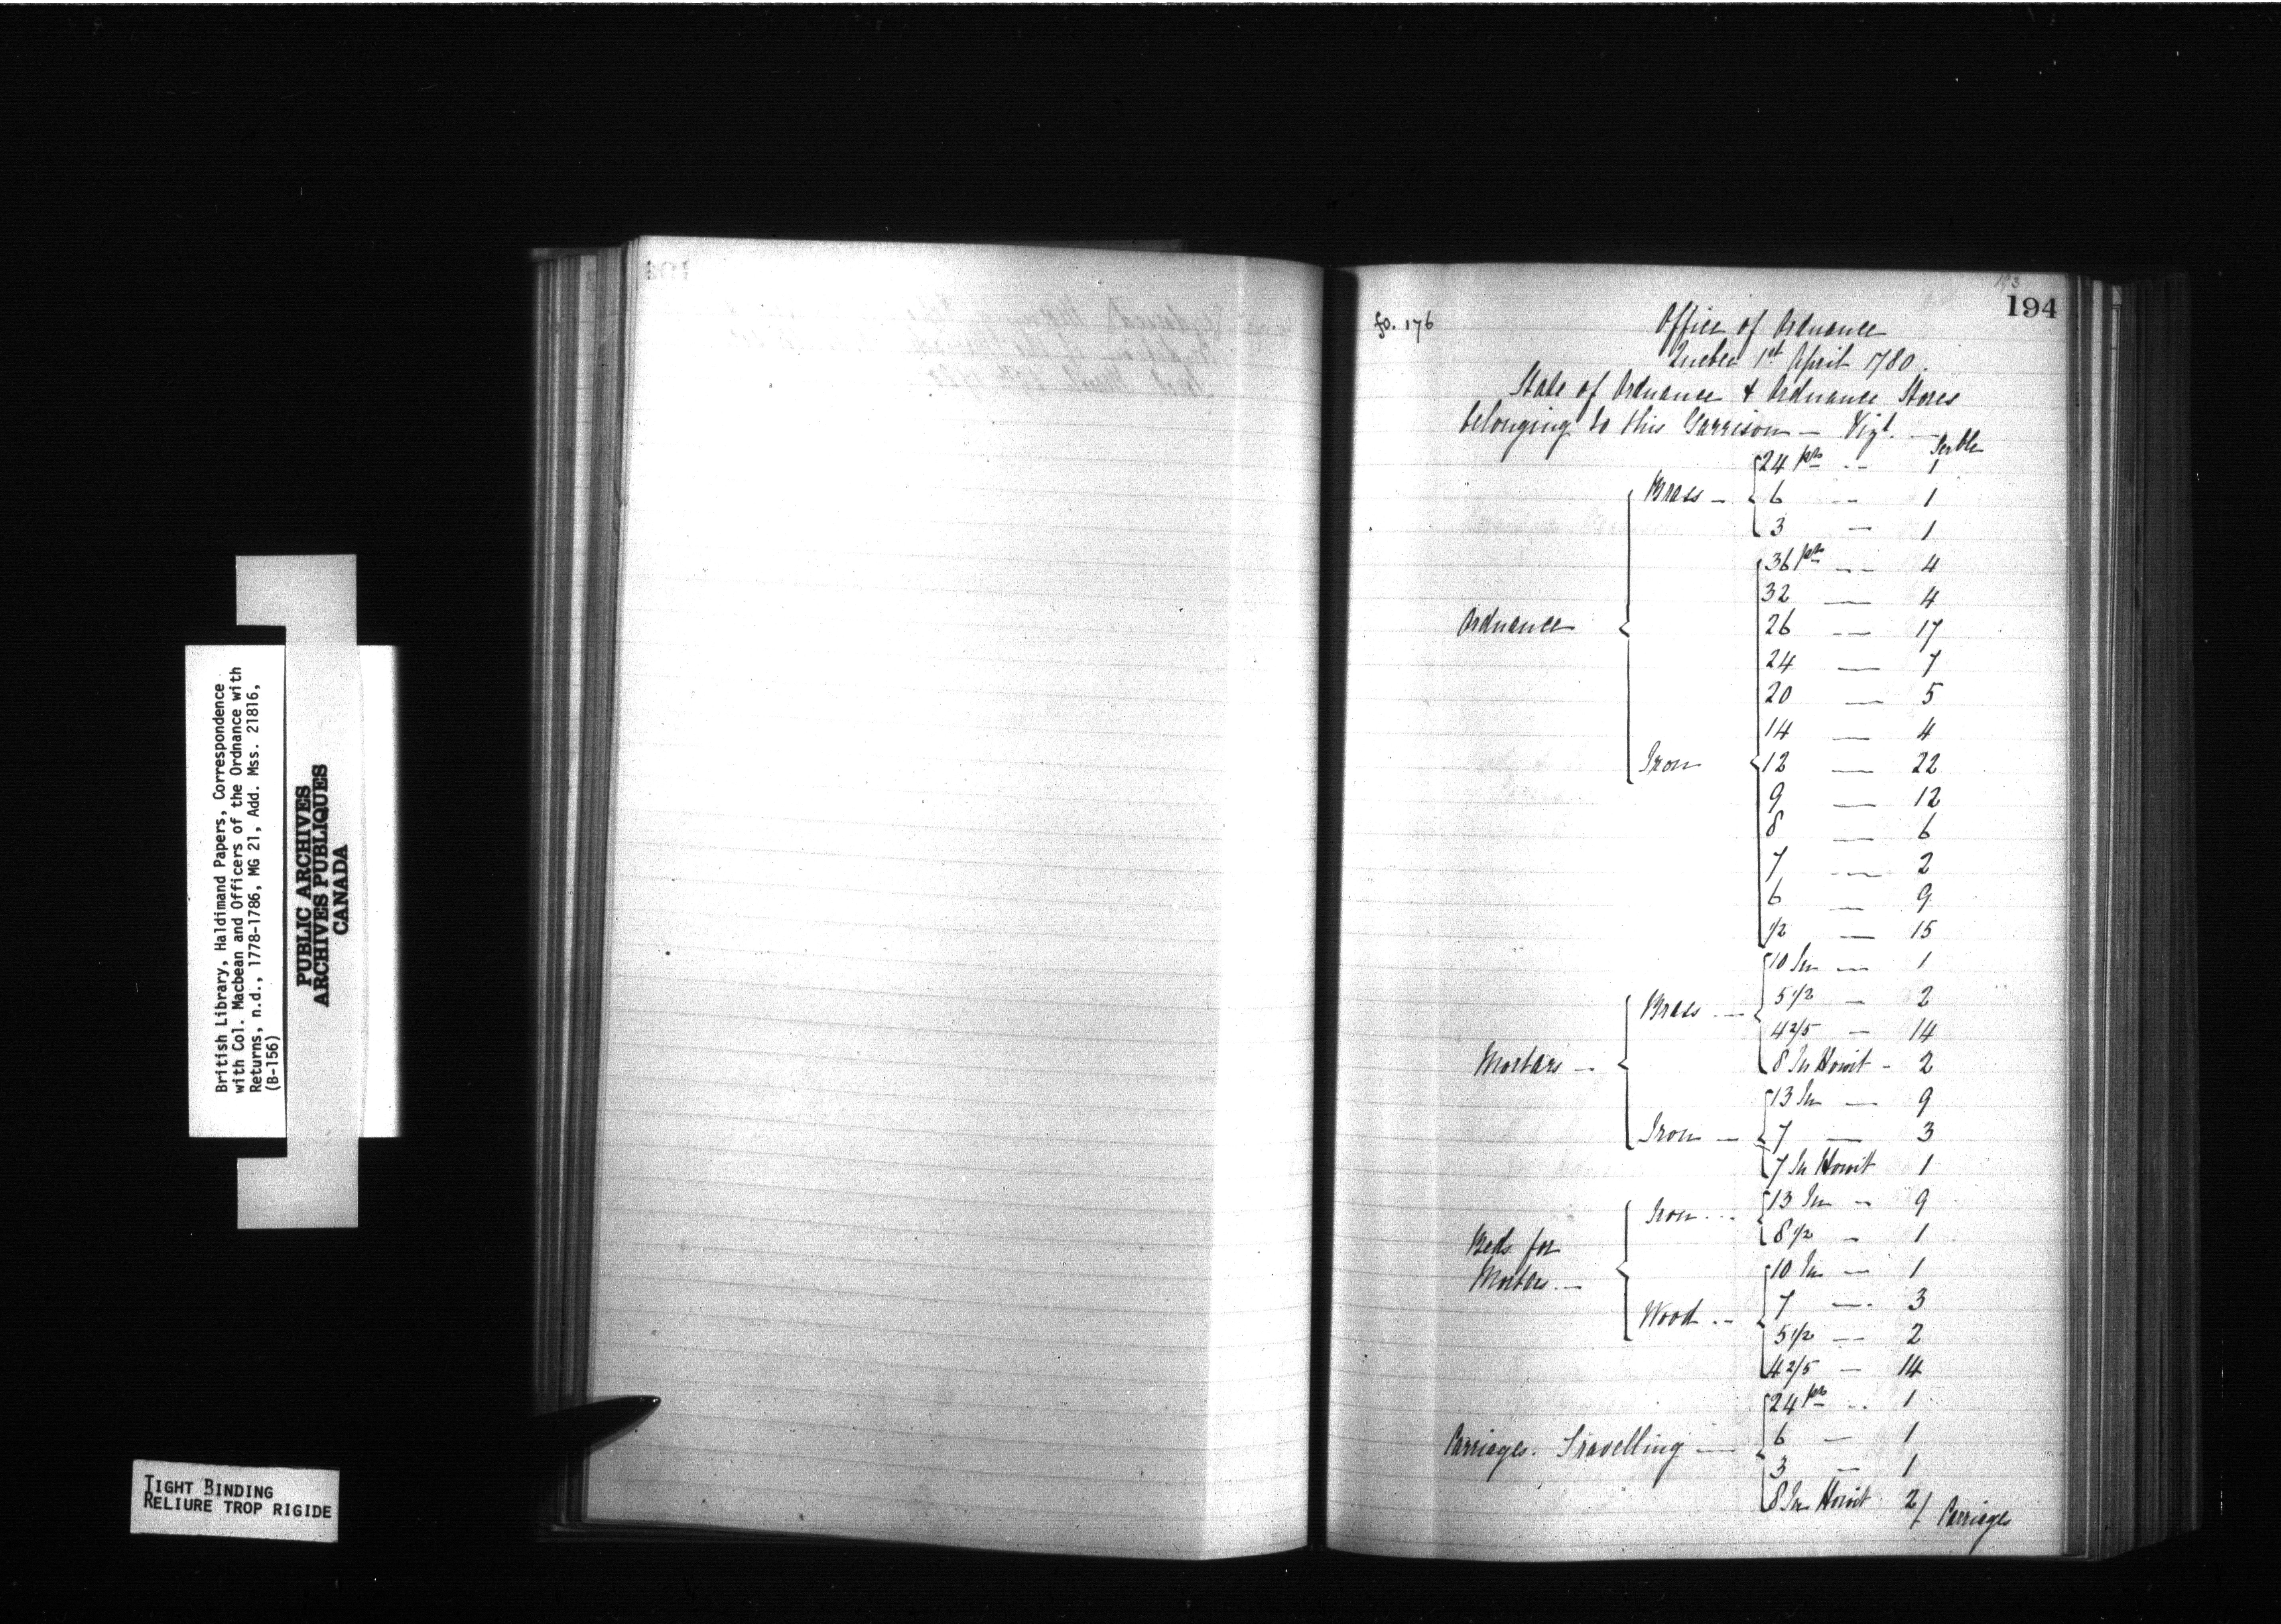 British Library, Haldimand Papers, Correspondence
with Col. Macbean and Officers of the Ordnance with
Returns, n.d., 1778-1786, MG 21, Add. Mss. 21816,
(B-156)
PUBLIC ARCHIVES
ARCHIVES PUBLIQUES
CANADA
TIGHT BINDING
RELIURE TROP RIGIDE
193
194
fo. 176
Office of Ordnance
Quebec 1st April 1780.
State of Ordnance & Ordnance Stores
belonging to this Garrison — Vizt. —
Serble
Ordnance
Brass —
24 prs -- 1
6 -- 1
3 — 1
Iron
36 prs -- 4
32 — 4
26 -- 17
24 — 7
20 — 5
14 — 4
12 — 22
9 — 12
8 — 6
7 — 2
6 — 9
1/2 — 15
Mortars —
Brass —
10 In — 1
5 1/2 — 2
4 2/5 — 14
8 In Howit - 2
Iron —
13 In — 9
7 — 3
7 In Howit 1
Beds for
Mortars. —
Iron ---
13 In — 9
8 1/2 — 1
Wood --
10 In — 1
7 — 3
5 1/2 — 2
4 2/5 — 14
Carriages. Travelling —
24 prs -- 1
6 — 1
3 — 1
8 In Howit 2/ Carriages